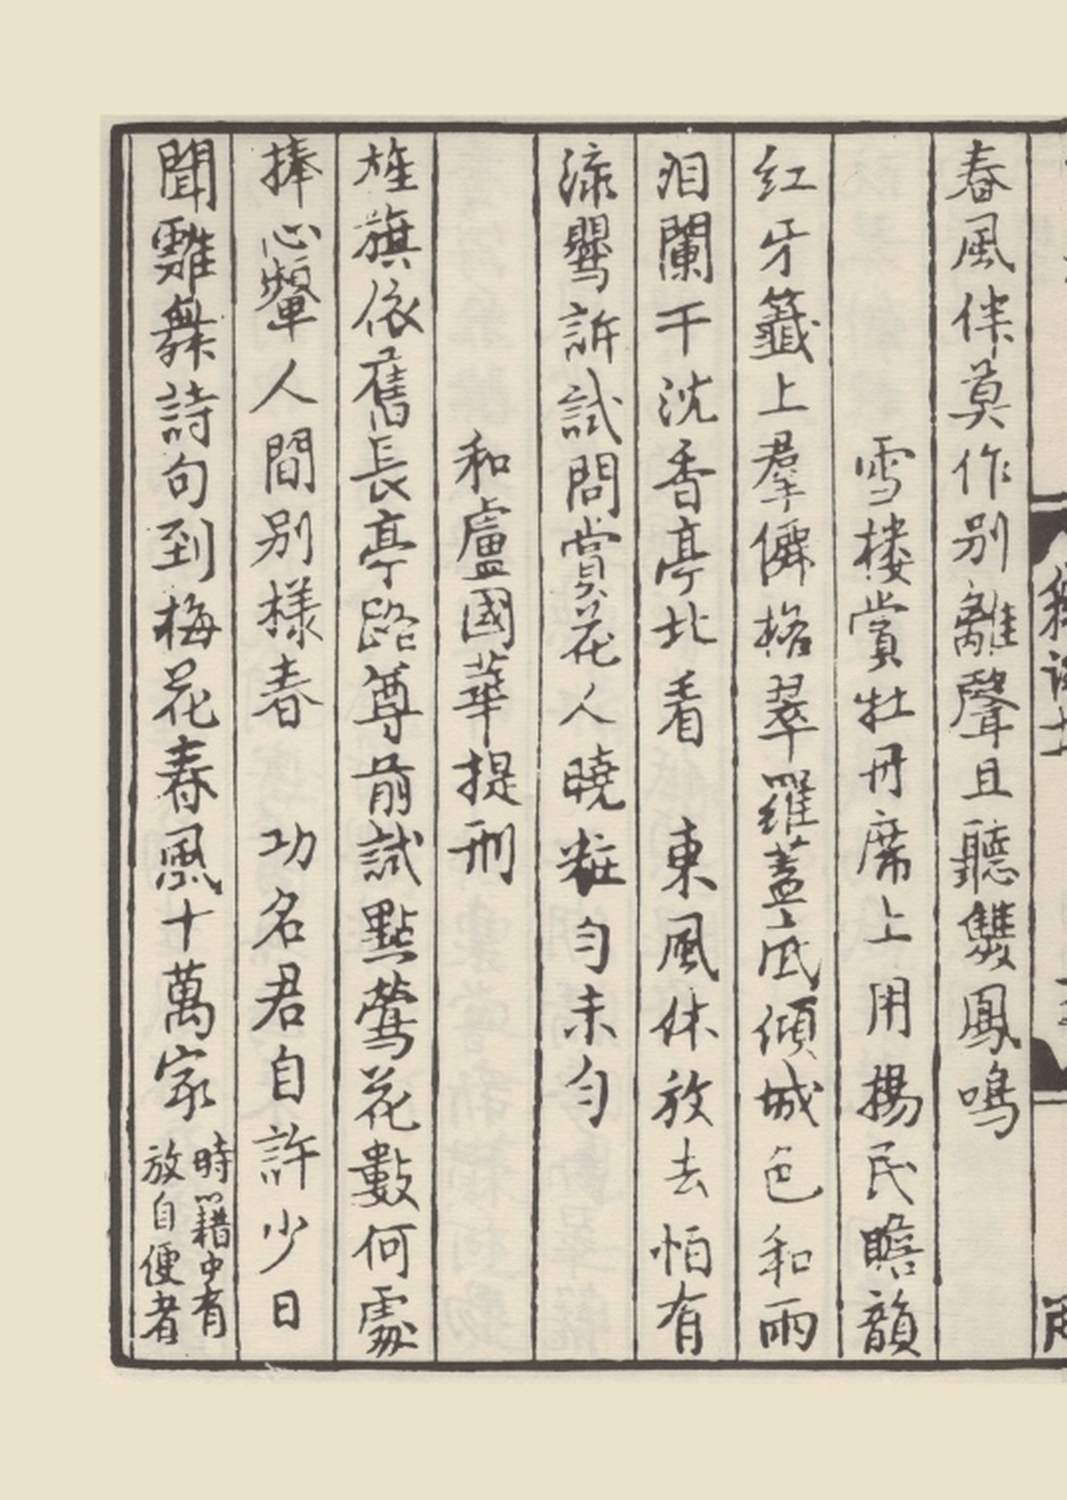 春風伴莫作別離聲且聽雙鳳鳴
雪樓賞牡丹席上用揚民瞻韻
紅牙籤上羣僊格翠羅蓋底傾城色和雨
淚闌干沈香亭北看　東風休放去怕有
流鶯訴試問賞花人曉粧勻未勻
和盧國華提刑
旌旗依舊長亭路尊前試點鶯花數何處
捧心顰人間別樣春　功名君自許少日
聞雞舞詩句到梅花春風十萬家
時籍中有
放自便者